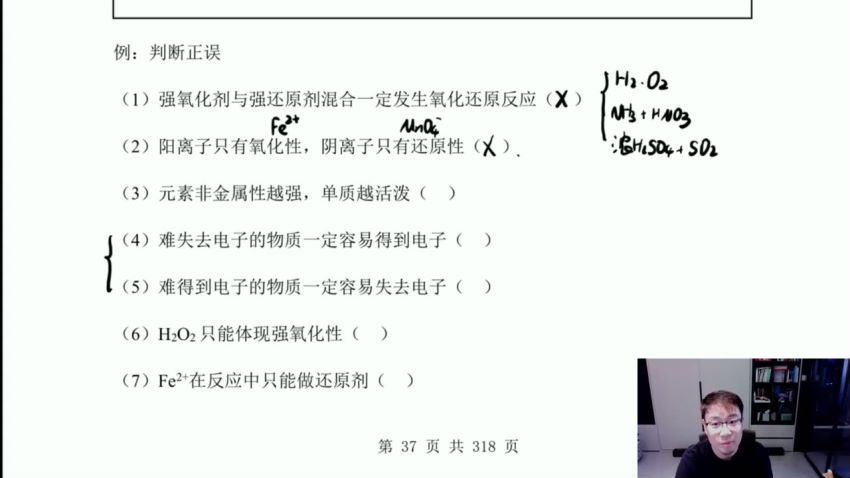 例：判断正误
（1）强氧化剂与强还原剂混合一定发生氧化还原反应（X）
H₂·O₂
NH₃+HNO₃
浓H₂SO₄+SO₂
Fe²⁺ MnO₄⁻
（2）阳离子只有氧化性，阴离子只有还原性（X）.
（3）元素非金属性越强，单质越活泼（ ）
（4）难失去电子的物质一定容易得到电子（ ）
（5）难得到电子的物质一定容易失去电子（ ）
（6）H₂O₂只能体现强氧化性（ ）
（7）Fe²⁺在反应中只能做还原剂（ ）
第 37 页 共 318 页